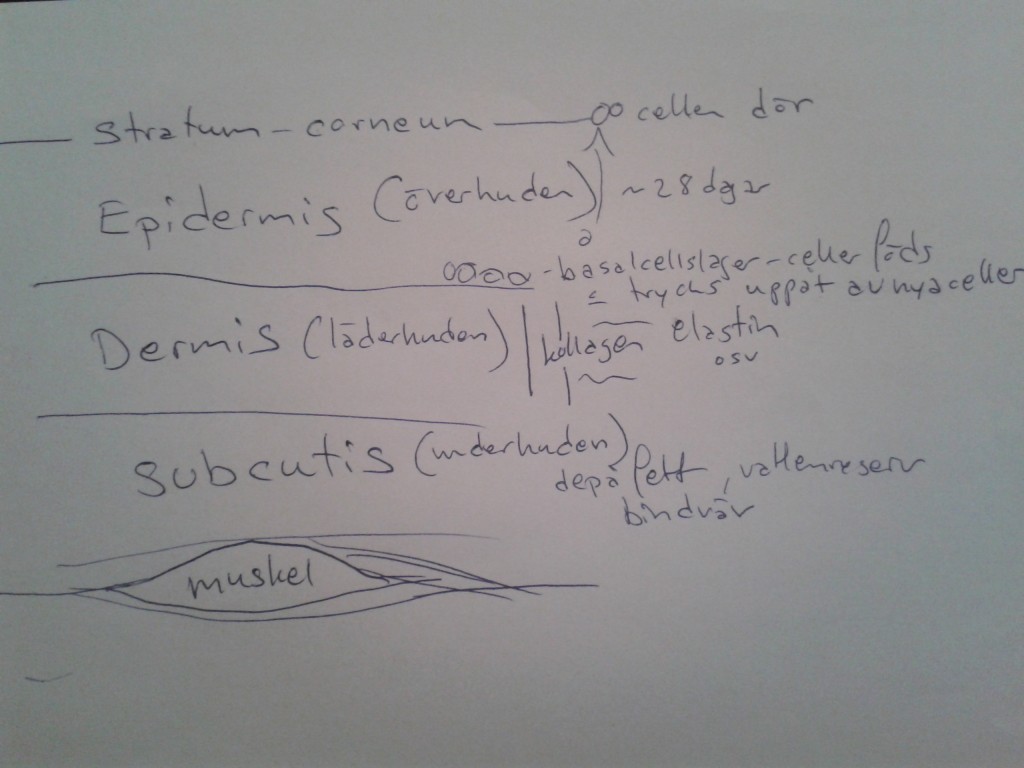 stratum - corneum cellen dör
Epidermis (överhuden) ~28 dagar
basalcellslager - celler föds
trycks uppåt av nya celler
Dermis (läderhuden) kollagen elastin
osv
Subcutis (underhuden)
depå fett, vattenreserv
bindväv
muskel